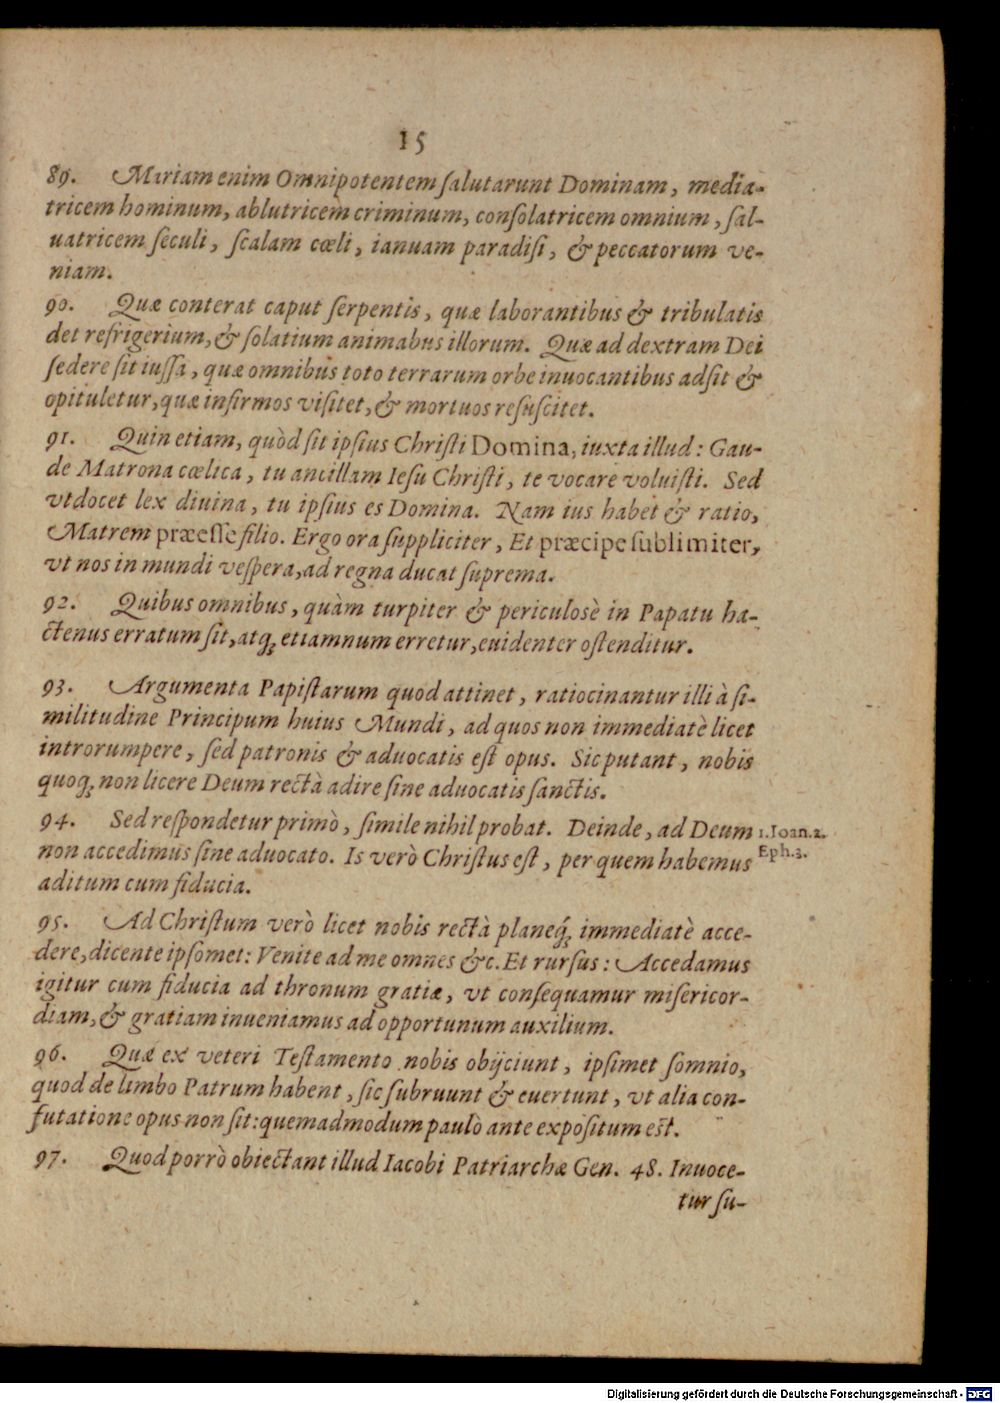 15
89. Mariam enim Omnipotentem ſalutarunt Dominam, media-
tricem hominum, ablutricem criminum, conſolatricem omnium, ſal-
uatricem ſeculi, ſcalam cœli, ianuam paradiſi, & peccatorum ve-
niam.
90. Quæ conterat caput ſerpentis, quæ laborantibus & tribulatis
det refrigerium, & ſolatium animabus illorum. Quæ ad dextram Dei
ſedere ſit iuſſa, quæ omnibus toto terrarum orbe inuocantibus adſit &
opituletur, quæ infirmos viſitet, & mortuos reſuſcitet.
91. Quin etiam, quòd ſit ipſius Chriſti Domina, iuxta illud: Gau-
de Matrona cœlica, tu ancillam Ieſu Chriſti, te vocare voluiſti. Sed
vt docet lex diuina, tu ipſius es Domina. Nam ius habet & ratio,
Matrem præeſſe filio. Ergo ora ſuppliciter, Et præcipe ſublimiter,
vt nos in mundi veſpera, ad regna ducat ſuprema.
92. Quibus omnibus, quàm turpiter & periculosè in Papatu ha-
ctenus erratum ſit, atq́; etiamnum erretur, euidenter oſtenditur.
93. Argumenta Papiſtarum quod attinet, ratiocinantur illi à ſi-
militudine Principum huius Mundi, ad quos non immediatè licet
introrumpere, ſed patronis & aduocatis eſt opus. Sic putant, nobis
quoq; non licere Deum rectà adire ſine aduocatis ſanctis.
94. Sed reſpondetur primò, ſimile nihil probat. Deinde, ad Deum
1. Ioan. 2.
non accedimus ſine aduocato. Is verò Chriſtus eſt, per quem habemus
Eph. 3.
aditum cum fiducia.
95. Ad Chriſtum verò licet nobis rectà planeq́; immediatè acce-
dere, dicente ipſomet: Venite ad me omnes &c. Et rurſus: Accedamus
igitur cum fiducia ad thronum gratiæ, vt conſequamur miſericor-
diam, & gratiam inueniamus ad opportunum auxilium.
96. Quæ ex veteri Teſtamento nobis obijciunt, ipſimet ſomnio,
quod de limbo Patrum habent, ſic ſubruunt & euertunt, vt alia con-
futatione opus non ſit: quemadmodum paulò ante expoſitum eſt.
97. Quod porrò obiectant illud Iacobi Patriarchæ Gen. 48. Inuoce-
tur ſu-
Digitalisierung gefördert durch die Deutsche Forschungsgemeinschaft - DFG